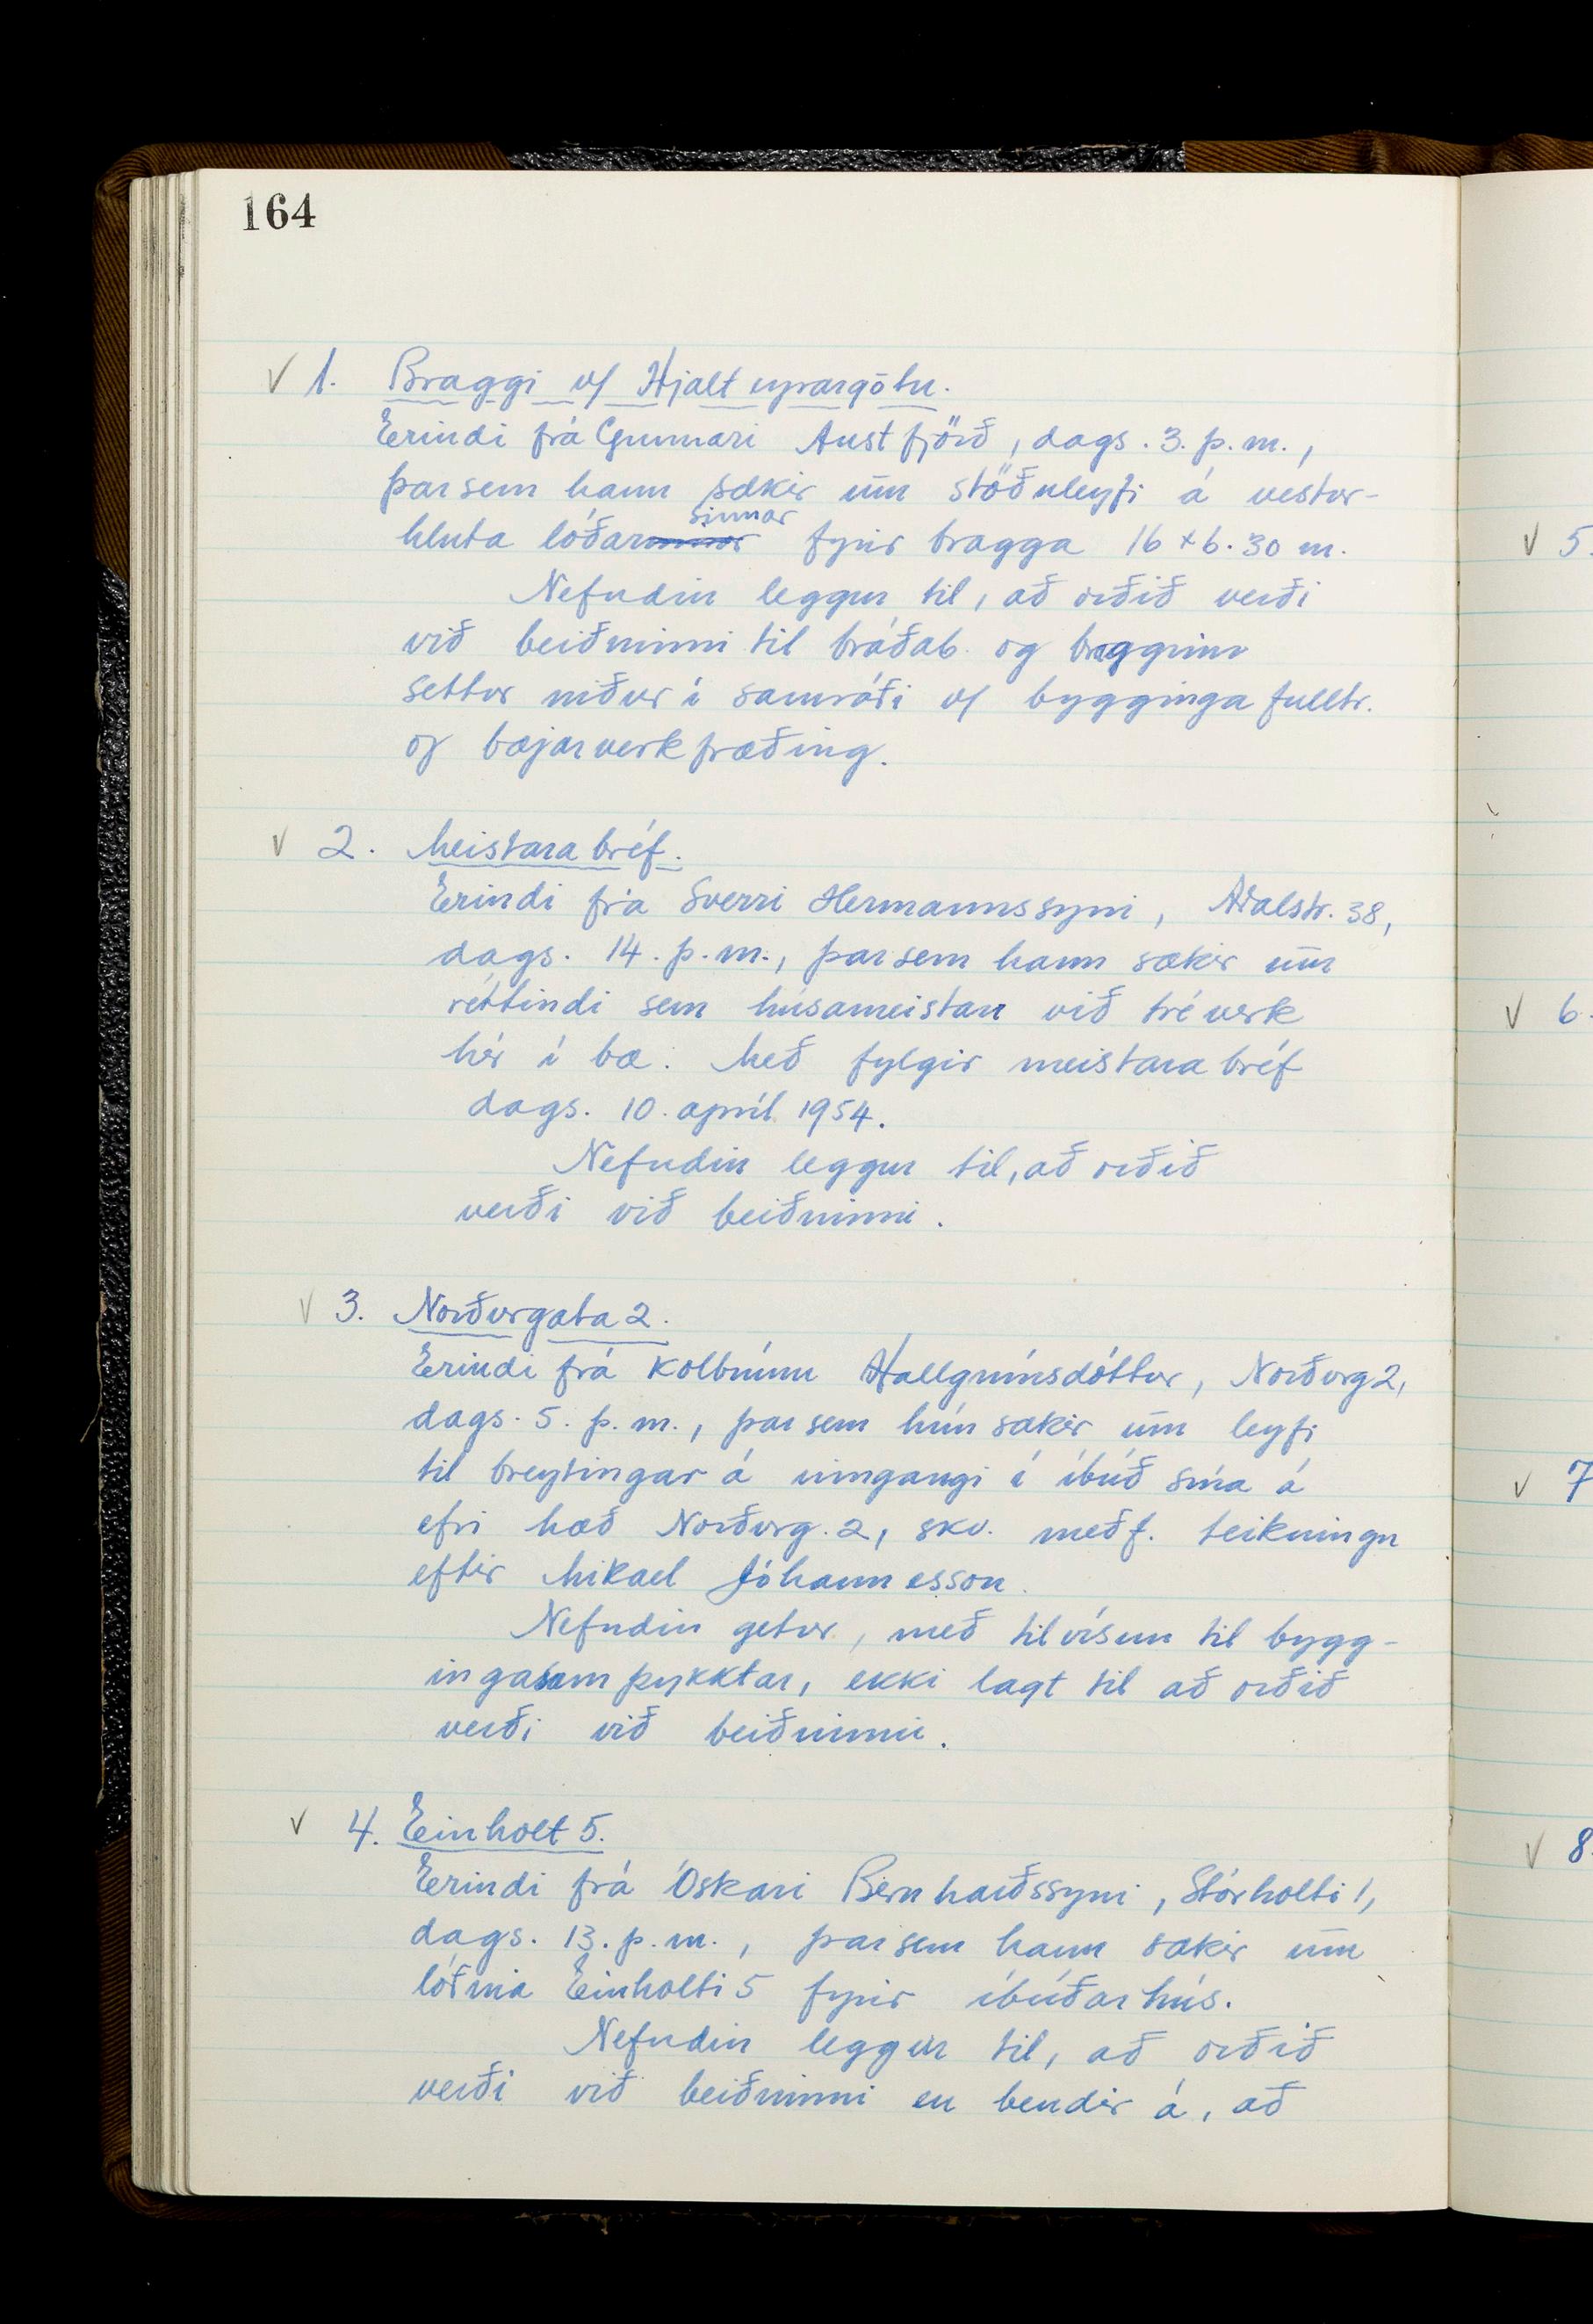 164
√ 1. Braggi v/ Hjalteyrargötu.
Erindi frá Gunnari Austfjörð, dags. 3. þ.m.,
þar sem hann sækir um stöðuleyfi á vestur-
sinnar
hluta lóðar fyrir bragga 16 × 6.30 m.
Nefndin leggur til, að orðið verði
við beiðninni til bráðab. og bragginn
settur niður í samráði v/ bygginga fulltr.
og bæjarverkfræðing.
√ 2. Meistarabréf.
Erindi frá Sverri Hermannssyni, Aðalstr. 38,
dags. 14. þ.m., þar sem hann sækir um
réttindi sem húsameistari við tréverk
hér í bæ. Með fylgir meistarabréf
dags. 10. apríl 1954.
Nefndin leggur til, að orðið
verði við beiðninni.
√ 3. Norðurgata 2.
Erindi frá Kolbrúnu Hallgrímsdóttur, Norðurg 2,
dags. 5. þ.m., þar sem hún sækir um leyfi
til breytingar á inngangi í íbúð sína á
efri hæð Norðurg. 2, skv. meðf. teikningu
eftir Mikael Jóhannesson.
Nefndin getur, með tilvísun til bygg-
ingasamþykktar, ekki lagt til að orðið
verði við beiðninni.
√ 4. Einholt 5.
Erindi frá Óskari Bernharðssyni, Stórholti 1,
dags. 13. þ.m., þar sem hann sækir um
lóðina Einholti 5 fyrir íbúðarhús.
Nefndin leggur til, að orðið
verði við beiðninni en bendir á, að
√ 5.
√ 6.
√ 7
√ 8.